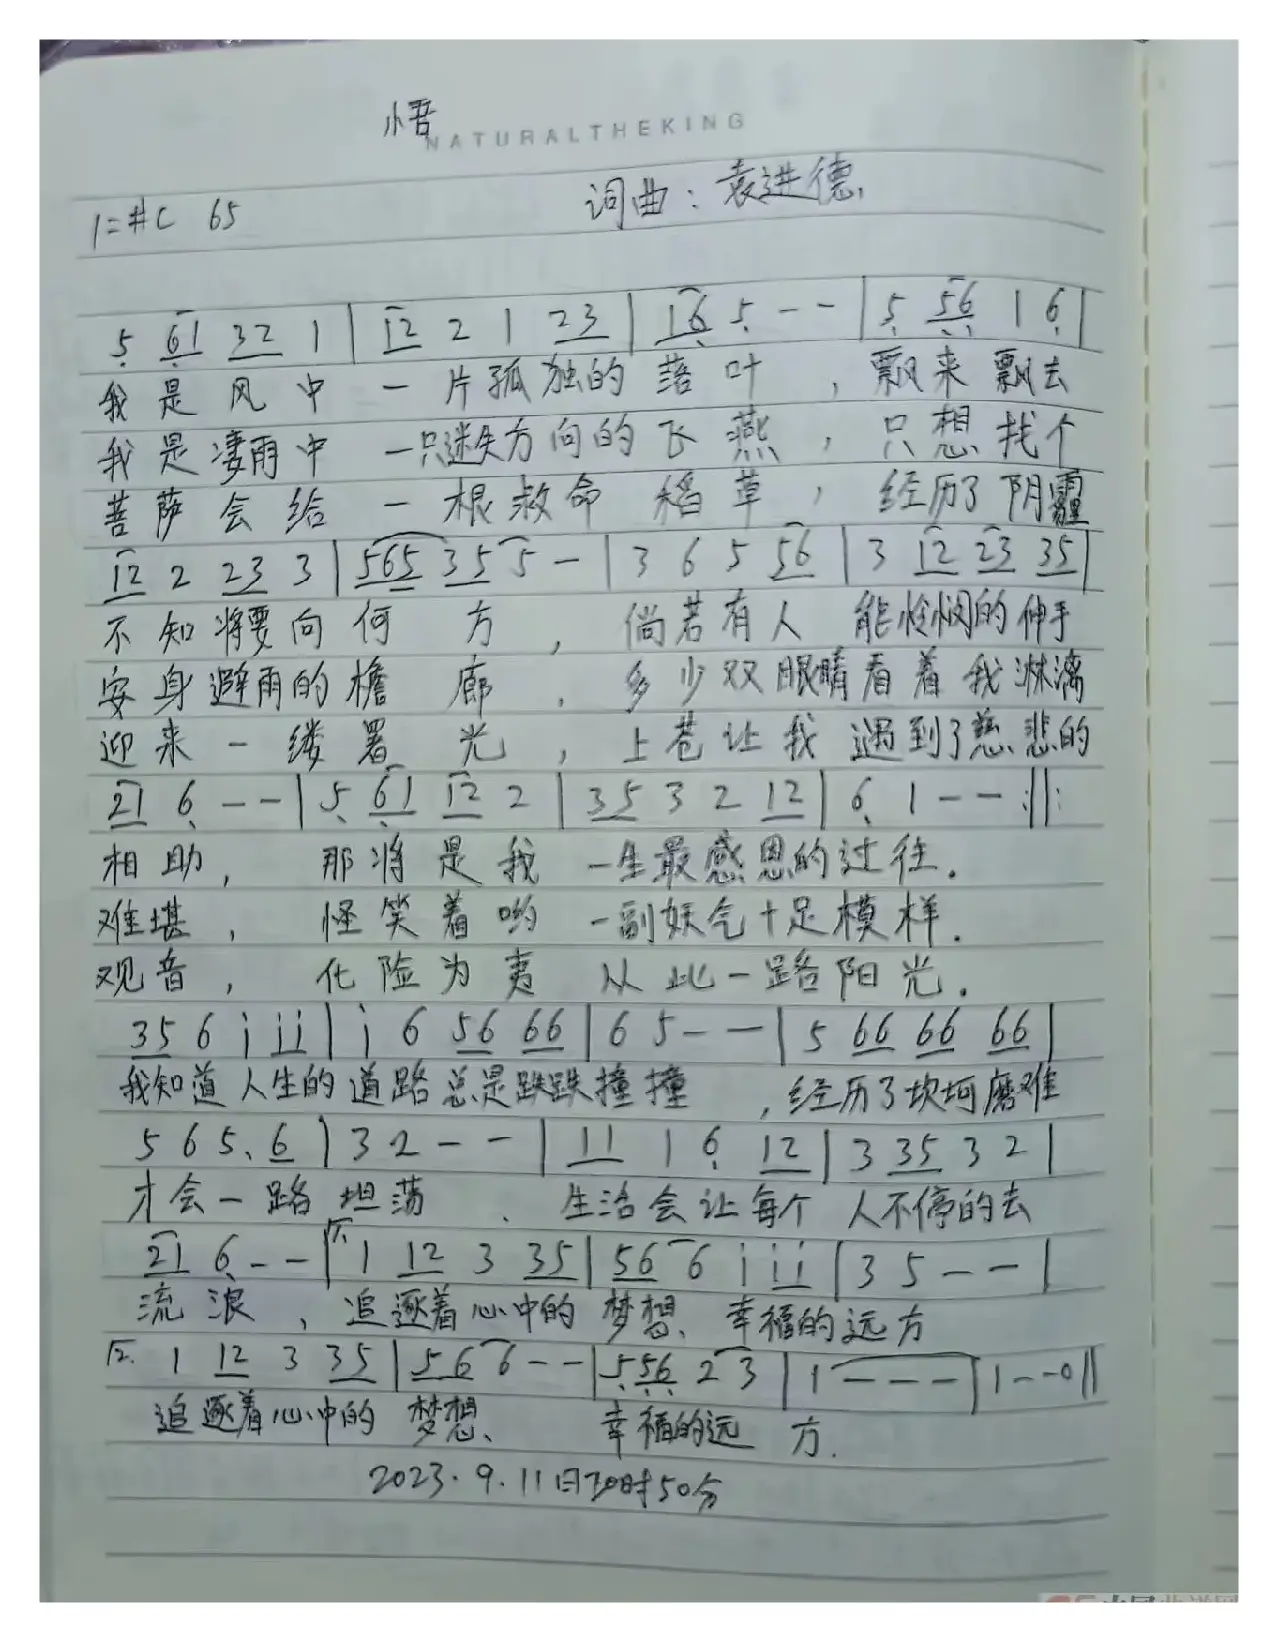 悟
NATURALTHEKING
词曲：袁进德
1=#C 65
5 61 32 1 | 12 2 1 23 | 16 5 - - | 5 56 1 6 |
我是风中 一片孤独的落叶，飘来飘去
我是凄雨中 一只迷失方向的飞燕，只想找个
菩萨会给 一根救命稻草，经历了阴霾
12 2 23 3 | 565 35 5 - | 3 6 5 56 | 3 12 23 35 |
不知将要向何方，倘若有人 能怜悯的伸手
安身避雨的檐廊，多少双眼睛看着我淋漓
迎来一缕署光，上苍让我遇到了慈悲的
21 6 - - | 5 61 12 2 | 35 3 2 12 | 6 1 - - :||:
相助，那将是我 一生最感恩的过往.
难堪，怪笑着哟 一副妖气十足模样.
观音，化险为夷 从此一路阳光.
35 6 i ii | i 6 56 66 | 6 5 - - | 5 66 66 66 |
我知道人生的道路总是跌跌撞撞，经历了坎坷磨难
5 6 5. 6 | 3 2 - - | 11 1 6 12 | 3 35 3 2 |
才会一路坦荡、生活会让每个 人不停的去
21 6 - - | 1. 1 12 3 35 | 56 6 i ii | 3 5 - - |
流浪，追逐着心中的梦想、幸福的远方
2. 1 12 3 35 | 56 6 - - | 5 56 2 3 | 1 - - - | 1 - - 0 ||
追逐着心中的梦想、幸福的远方.
2023.9.11日20时50分